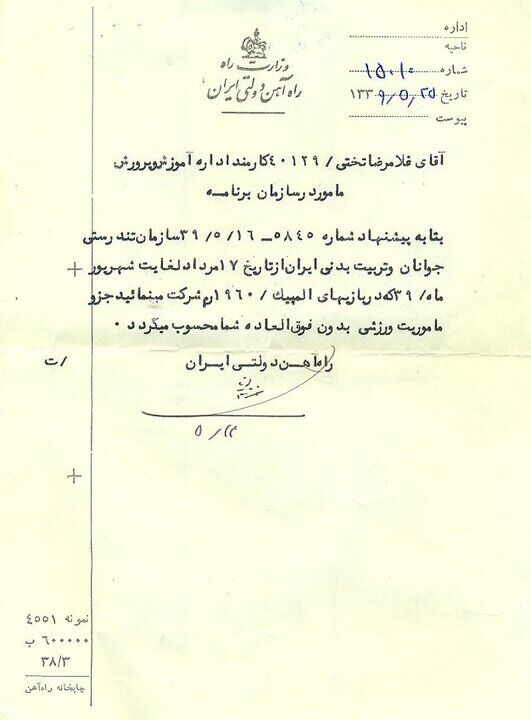 وزارت راه
راه آهن دولتی ایران
اداره
ناحیه
شماره ۱۵۰۱۰
تاریخ ۱۳۳۹/۵/۲۵
پیوست
آقای غلامرضا تختی / ۴۰۱۲۹ کارمند اداره آموزش و پرورش
مامور در سازمان برنامه
بنا به پیشنهاد شماره ۵۸۴۵ ـ ۳۹/۵/۱۶ سازمان تندرستی
جوانان و تربیت بدنی ایران از تاریخ ۱۷ مرداد لغایت شهریور
ماه / ۳۹ که در بازیهای المپیک / ۱۹۶۰ رم شرکت مینمائید جزو
ماموریت ورزشی بدون فوق العاده شما محسوب میگردد ۰
راه آهن دولتی ایران
ت /
۵/۲۳
نمونه ۴۵۵۱
۶۰۰۰۰۰ ب
۳۸/۳
چاپخانه راه‌آهن